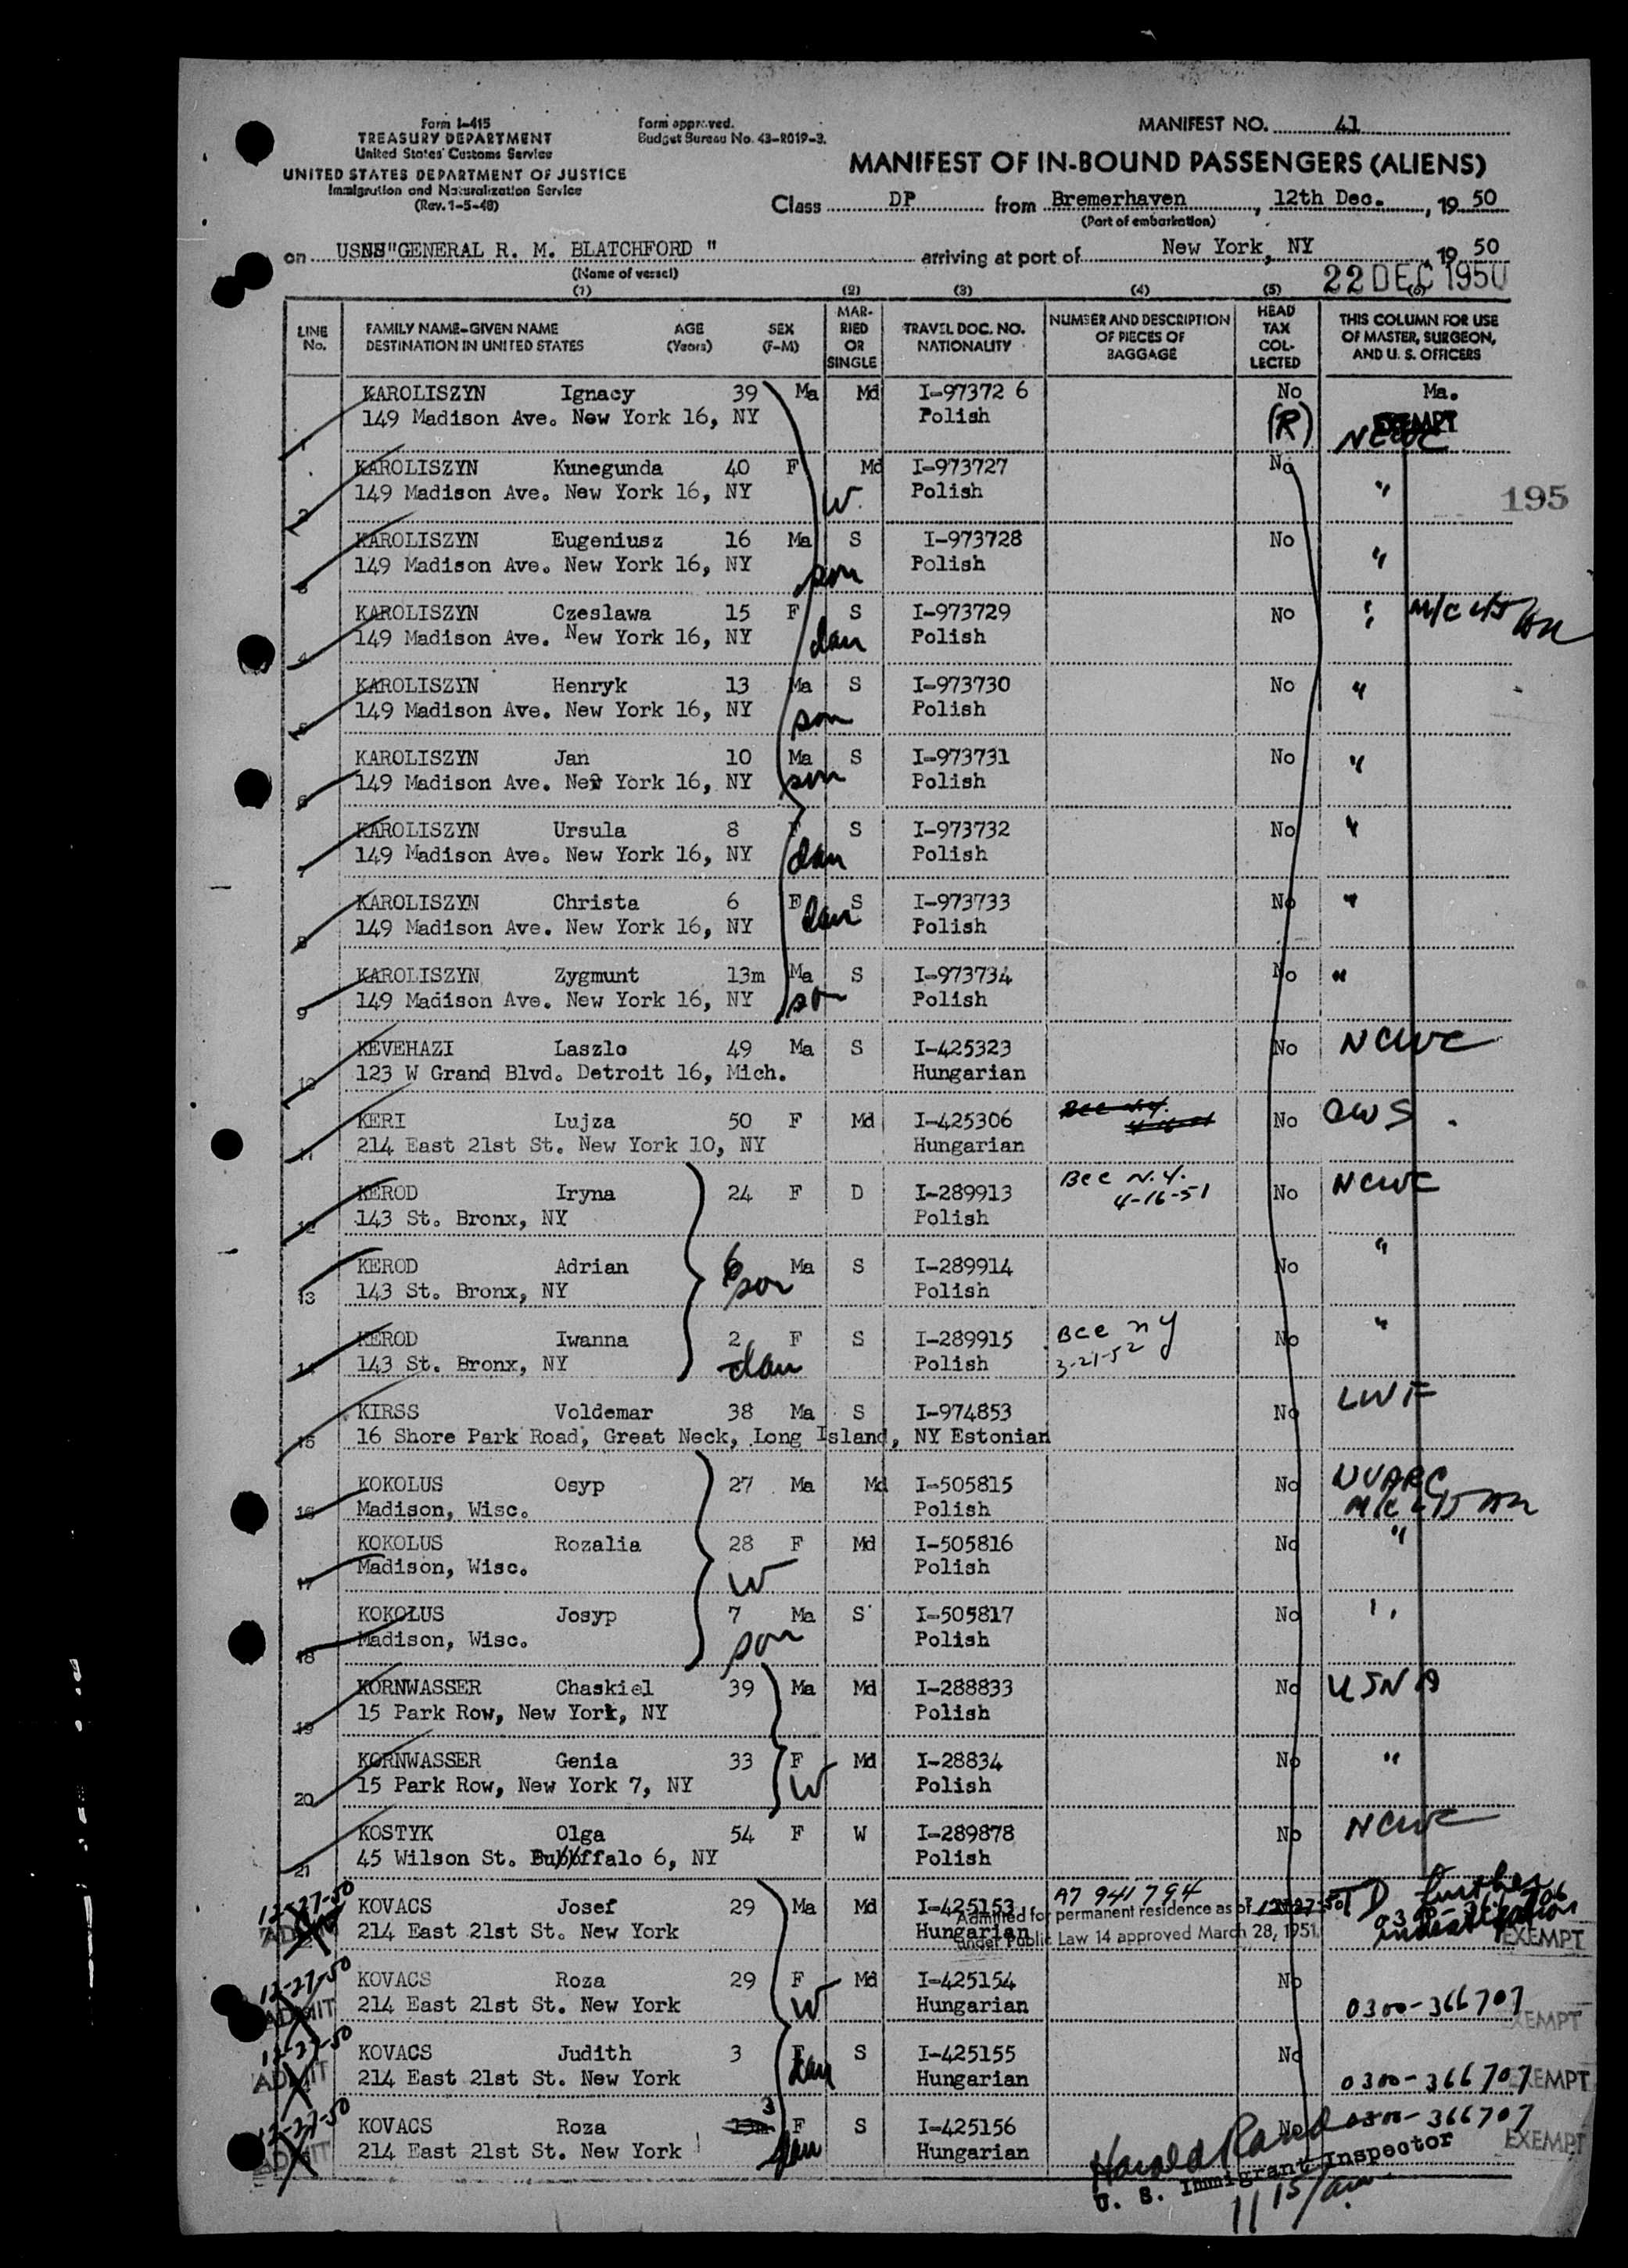 Form I-415
TREASURY DEPARTMENT
United States Customs Service
UNITED STATES DEPARTMENT OF JUSTICE
Immigration and Naturalization Service
(Rev. 1-5-48)
Form approved.
Budget Bureau No. 43-R019-3.
MANIFEST NO. 41
MANIFEST OF IN-BOUND PASSENGERS (ALIENS)
Class DP from Bremerhaven, 12th Dec., 19 50
(Port of embarkation)
on USNS "GENERAL R. M. BLATCHFORD " arriving at port of New York, NY 19 50
(Name of vessel)
22 DEC 1950
(1) (2) (3) (4) (5) (6)
LINE No. FAMILY NAME-GIVEN NAME DESTINATION IN UNITED STATES AGE (Years) SEX (F-M) MARRIED OR SINGLE TRAVEL DOC. NO. NATIONALITY NUMBER AND DESCRIPTION OF PIECES OF BAGGAGE HEAD TAX COLLECTED THIS COLUMN FOR USE OF MASTER, SURGEON, AND U. S. OFFICERS
KAROLISZYN Ignacy 39 Ma Md I-97372 6 No Ma.
1 149 Madison Ave. New York 16, NY Polish (R) EXEMPT NCWC
KAROLISZYN Kunegunda 40 F Md I-973727 No "
2 149 Madison Ave. New York 16, NY W. Polish
195
KAROLISZYN Eugeniusz 16 Ma S I-973728 No "
3 149 Madison Ave. New York 16, NY son Polish
KAROLISZYN Czeslawa 15 F S I-973729 No " M/C
4 149 Madison Ave. New York 16, NY dau Polish
KAROLISZYN Henryk 13 Ma S I-973730 No "
5 149 Madison Ave. New York 16, NY son Polish
KAROLISZYN Jan 10 Ma S I-973731 No "
6 149 Madison Ave. New York 16, NY son Polish
KAROLISZYN Ursula 8 F S I-973732 No "
7 149 Madison Ave. New York 16, NY dau Polish
KAROLISZYN Christa 6 F S I-973733 No "
8 149 Madison Ave. New York 16, NY dau Polish
KAROLISZYN Zygmunt 13m Ma S I-973734 No "
9 149 Madison Ave. New York 16, NY son Polish
KEVEHAZI Laszlo 49 Ma S I-425323 No NCWC
10 123 W Grand Blvd. Detroit 16, Mich. Hungarian
KERI Lujza 50 F Md I-425306 No CWS
11 214 East 21st St. New York 10, NY Hungarian
KEROD Iryna 24 F D I-289913 Bcc N.Y. 4-16-51 No NCWC
12 143 St. Bronx, NY Polish
KEROD Adrian 6 Ma S I-289914 No "
13 143 St. Bronx, NY son Polish
KEROD Iwanna 2 F S I-289915 Bcc NY 3-21-52 No "
14 143 St. Bronx, NY dau Polish
KIRSS Voldemar 38 Ma S I-974853 No LWF
15 16 Shore Park Road, Great Neck, Long Island, NY Estonian
KOKOLUS Osyp 27 Ma Md I-505815 No UUARC
16 Madison, Wisc. Polish M/C
KOKOLUS Rozalia 28 F Md I-505816 No "
17 Madison, Wisc. W Polish
KOKOLUS Josyp 7 Ma S I-505817 No "
18 Madison, Wisc. son Polish
KORNWASSER Chaskiel 39 Ma Md I-288833 No USNA
19 15 Park Row, New York, NY Polish
KORNWASSER Genia 33 F Md I-28834 No "
20 15 Park Row, New York 7, NY W Polish
KOSTYK Olga 54 F W I-289878 No NCWC
21 45 Wilson St. Buffalo 6, NY Polish
12-27-50 KOVACS Josef 29 Ma Md I-425153 A7 941794 TD further investigation
ADMIT 214 East 21st St. New York Hungarian EXEMPT
Admitted for permanent residence as of 12-27-50
under Public Law 14 approved March 28, 1951.
12-27-50 KOVACS Roza 29 F Md I-425154 No
ADMIT 214 East 21st St. New York W Hungarian 0300-366707 EXEMPT
12-27-50 KOVACS Judith 3 F S I-425155 No
ADMIT 214 East 21st St. New York dau Hungarian 0300-366707 EXEMPT
12-27-50 KOVACS Roza 3 F S I-425156 No 0300-366707
ADMIT 214 East 21st St. New York dau Hungarian EXEMPT
Harold Rand
U. S. Immigrant Inspector
11 15/am